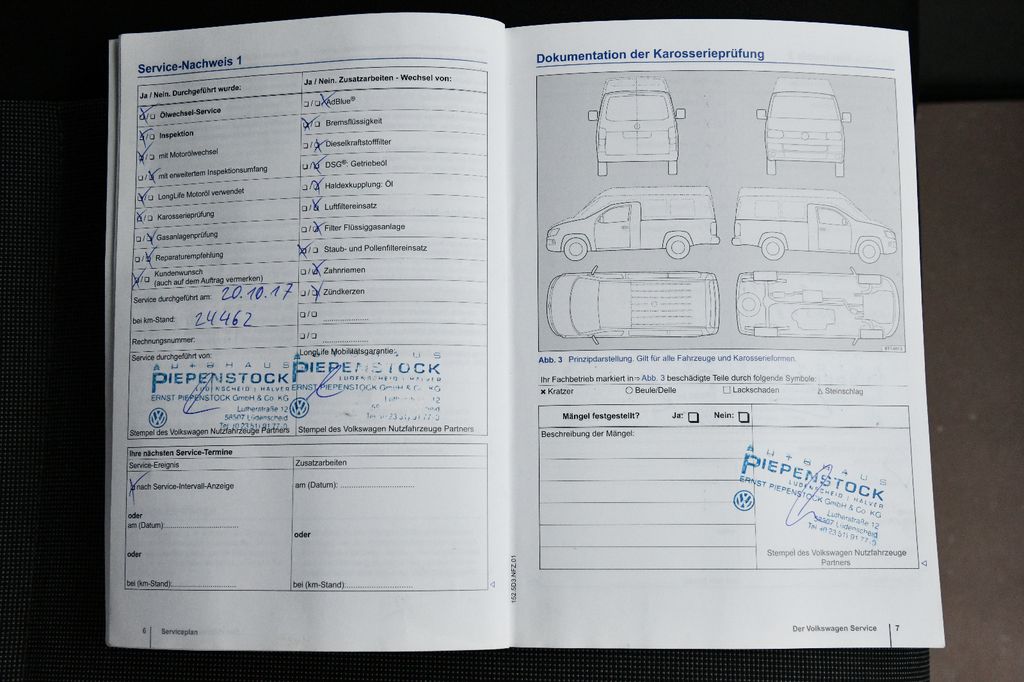 Service-Nachweis 1
Ja / Nein. Durchgeführt wurde:
Ölwechsel-Service
Inspektion
mit Motorölwechsel
mit erweitertem Inspektionsumfang
LongLife Motoröl verwendet
Karosserieprüfung
Gasanlagenprüfung
Reparaturempfehlung
Kundenwunsch
(auch auf dem Auftrag vermerken)
Service durchgeführt am: 20.10.17
bei km-Stand: 24462
Rechnungsnummer:
Service durchgeführt von:
AUTOHAUS
PIEPENSTOCK
LÜDENSCHEID | HALVER
ERNST PIEPENSTOCK GmbH & Co. KG
Lutherstraße 12
58507 Lüdenscheid
Tel. (0 23 51) 91 77-0
Stempel des Volkswagen Nutzfahrzeuge Partners
Ja / Nein. Zusatzarbeiten - Wechsel von:
AdBlue®
Bremsflüssigkeit
Dieselkraftstofffilter
DSG®: Getriebeöl
Haldexkupplung: Öl
Luftfiltereinsatz
Filter Flüssiggasanlage
Staub- und Pollenfiltereinsatz
Zahnriemen
Zündkerzen
LongLife Mobilitätsgarantie:
PIEPENSTOCK
LÜDENSCHEID | HALVER
ERNST PIEPENSTOCK GmbH & Co. KG
Stempel des Volkswagen Nutzfahrzeuge Partners
Ihre nächsten Service-Termine
Service-Ereignis
nach Service-Intervall-Anzeige
oder
am (Datum):
oder
bei (km-Stand):
Zusatzarbeiten
am (Datum):
oder
bei (km-Stand):
152.5D3.NFZ.01
6 Serviceplan
Dokumentation der Karosserieprüfung
Abb. 3 Prinzipdarstellung. Gilt für alle Fahrzeuge und Karosserieformen.
Ihr Fachbetrieb markiert in ⇒ Abb. 3 beschädigte Teile durch folgende Symbole:
Kratzer Beule/Delle Lackschaden Steinschlag
Mängel festgestellt? Ja: Nein:
Beschreibung der Mängel:
AUTOHAUS
PIEPENSTOCK
LÜDENSCHEID | HALVER
ERNST PIEPENSTOCK GmbH & Co. KG
Lutherstraße 12
58507 Lüdenscheid
Tel. (0 23 51) 91 77-0
Stempel des Volkswagen Nutzfahrzeuge
Partners
Der Volkswagen Service 7